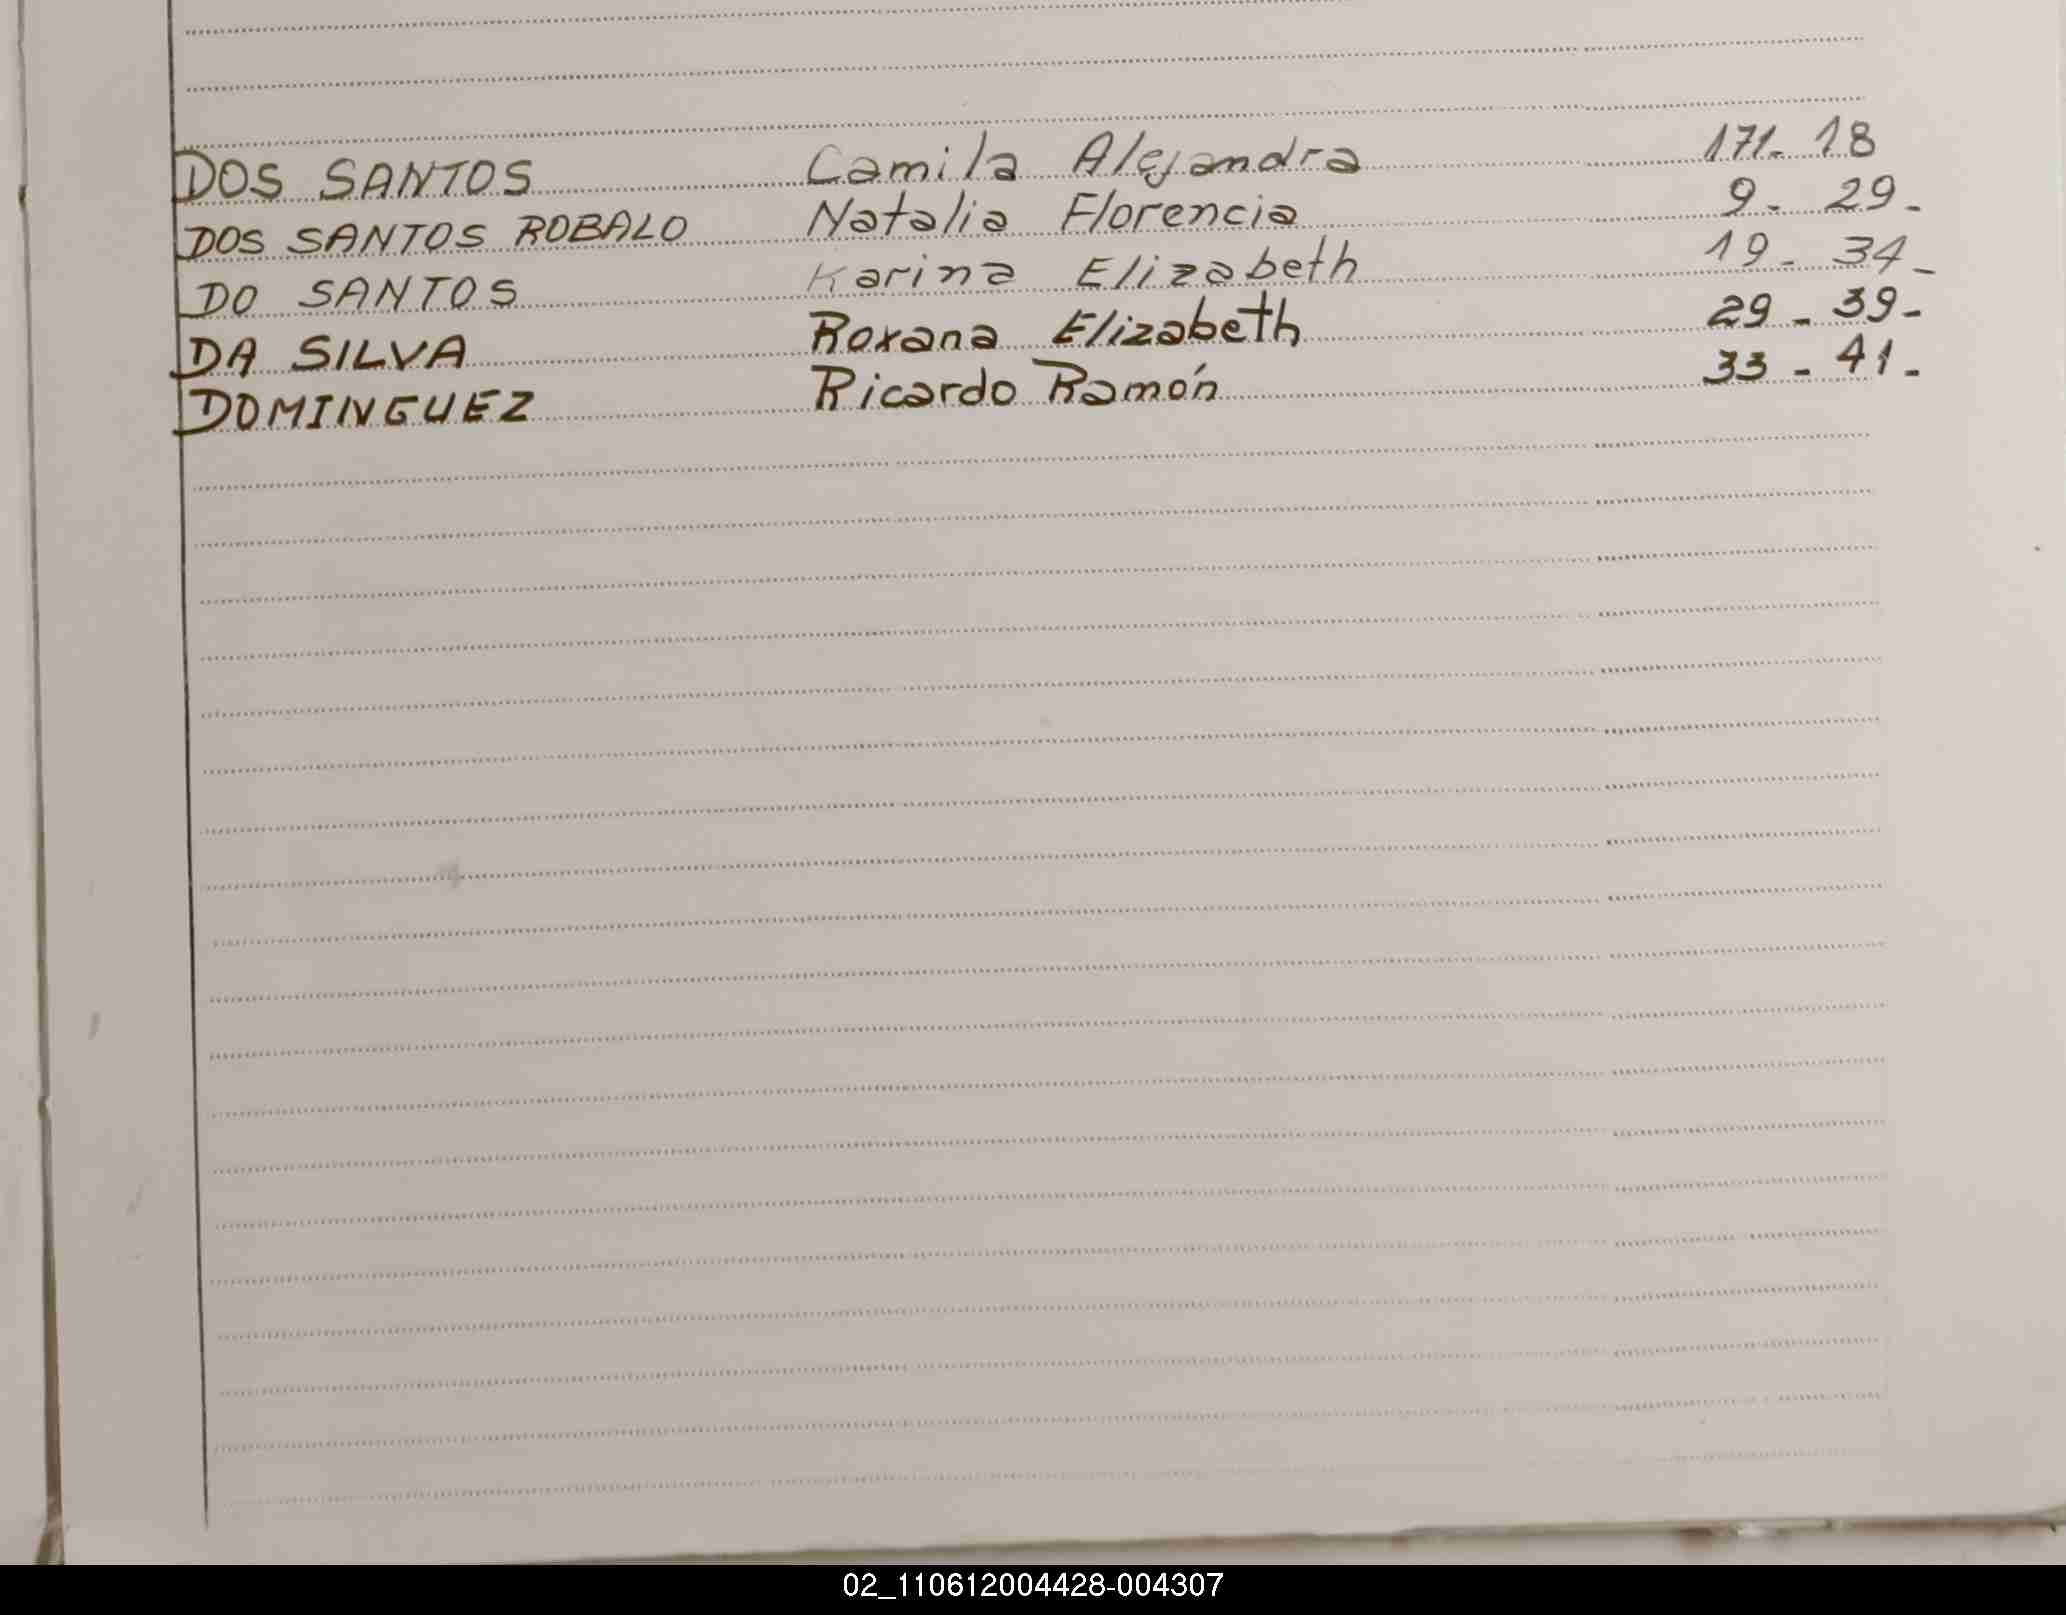 DOS SANTOS Camila Alejandra 171- 18
DOS SANTOS ROBALO Natalia Florencia 9- 29-
DO SANTOS Karina Elizabeth 19- 34-
DA SILVA Roxana Elizabeth 29- 39-
DOMINGUEZ Ricardo Ramón 33- 41-
02_110612004428-004307